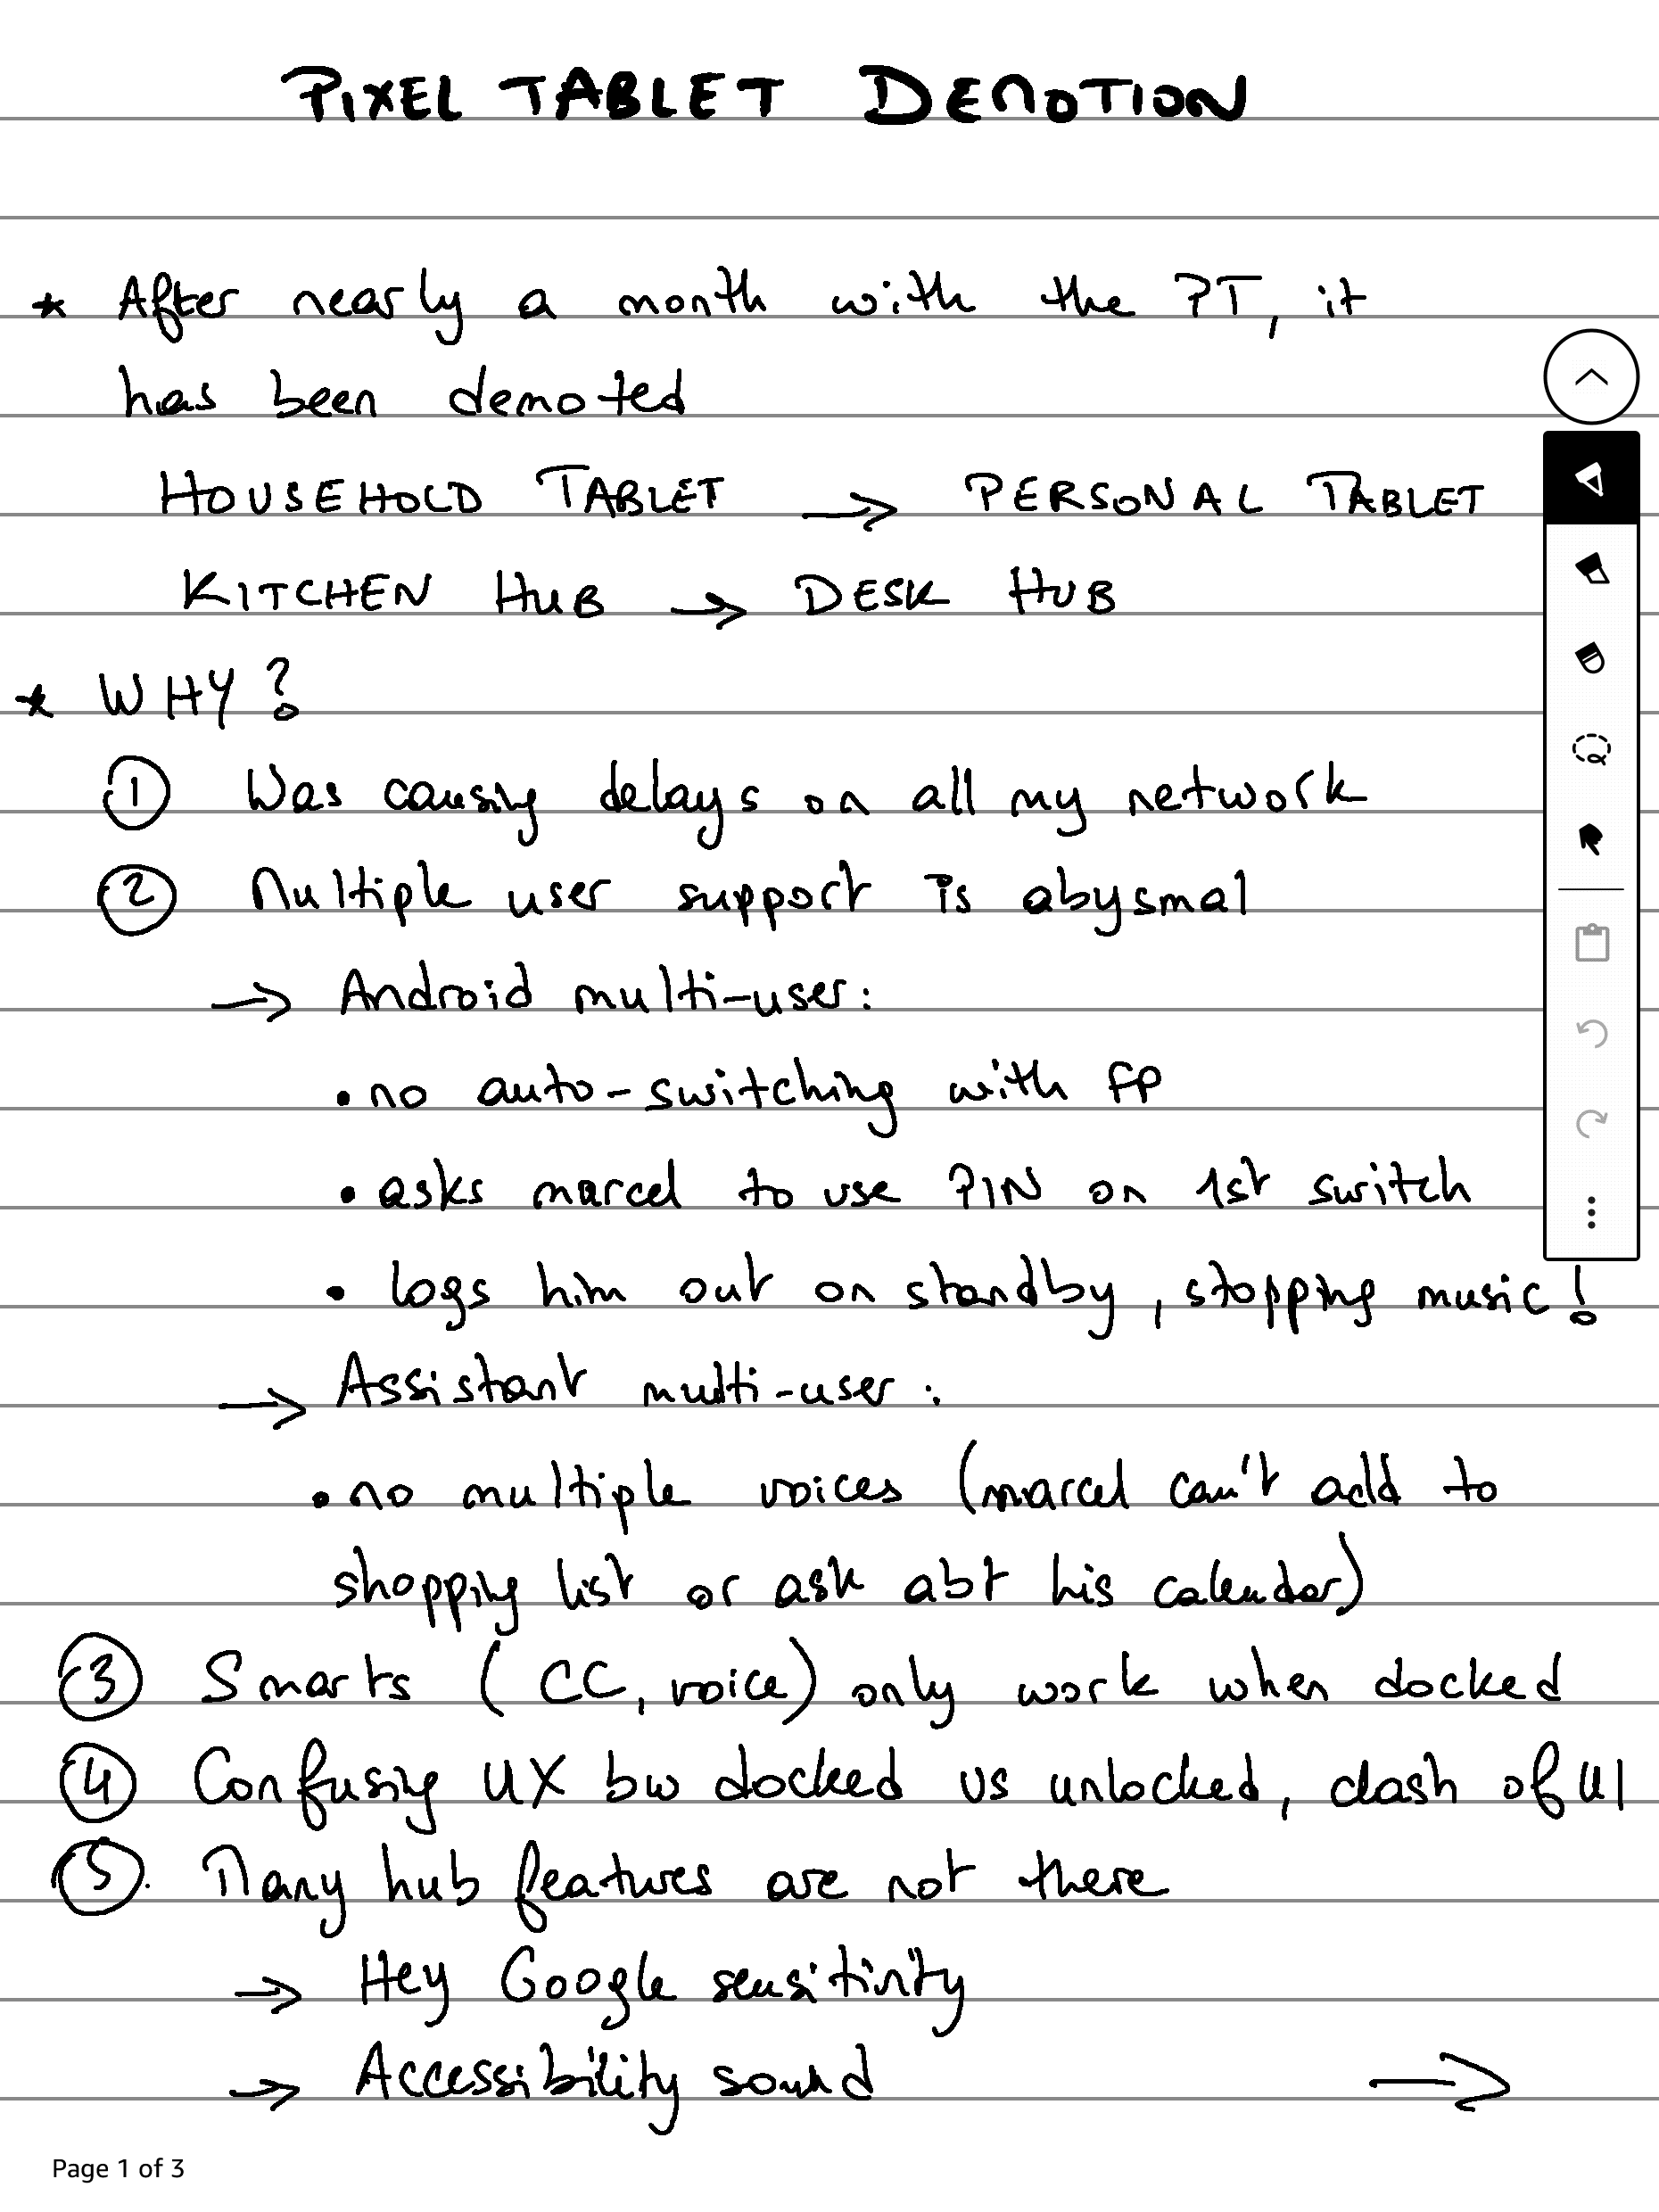 PIXEL TABLET DEMOTION
* After nearly a month with the PT, it
has been demoted
HOUSEHOLD TABLET → PERSONAL TABLET
KITCHEN HUB → DESK HUB
* WHY?
① Was causing delays on all my network
② Multiple user support is abysmal
→ Android multi-user:
• no auto-switching with fp
• asks marcel to use PIN on 1st switch
• logs him out on standby, stopping music!
→ Assistant multi-user:
• no multiple voices (marcel can't add to
shopping list or ask abt his calendar)
③ Smarts (CC, voice) only work when docked
④ Confusing UX bw docked vs unlocked, clash of UI
⑤. Many hub features are not there
→ Hey Google sensitivity
→ Accessibility sound →
Page 1 of 3